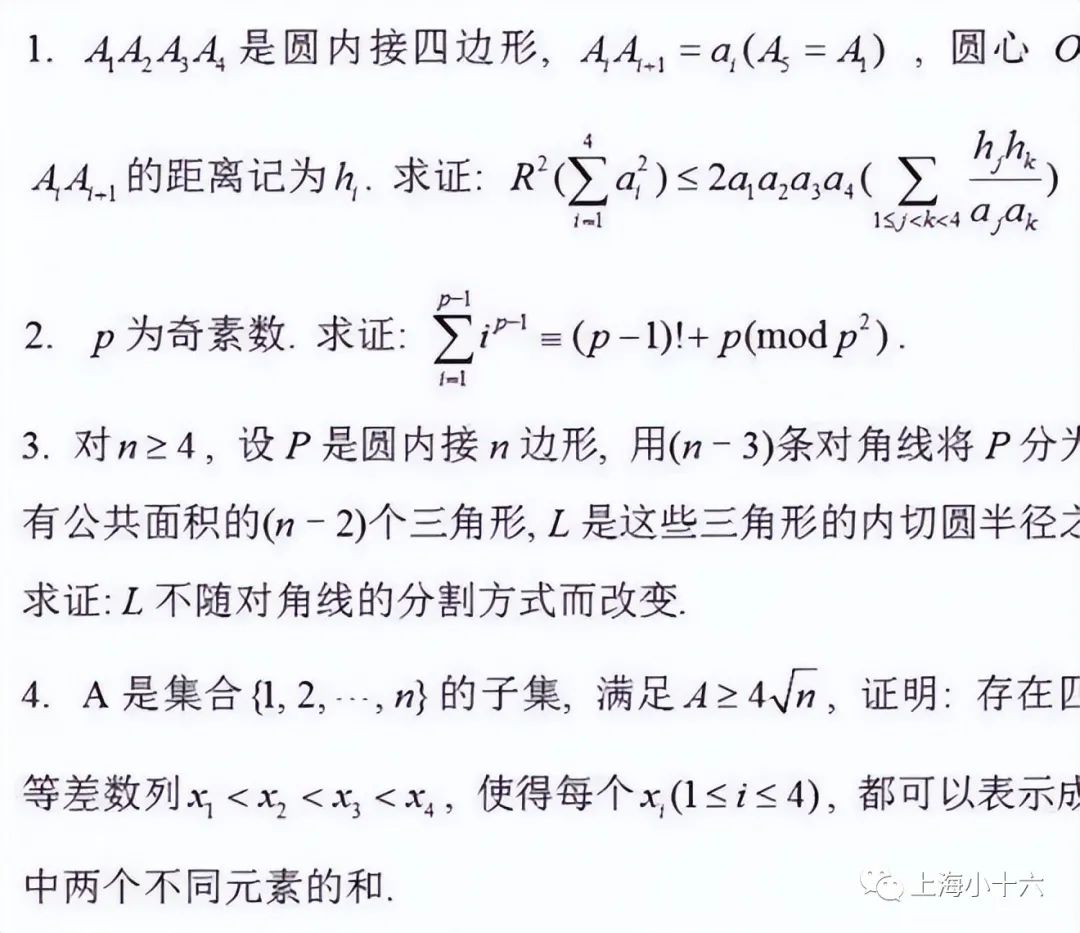 1. A₁A₂A₃A₄ 是圆内接四边形, AᵢAᵢ₊₁ = aᵢ(A₅ = A₁) , 圆心 O
AᵢAᵢ₊₁ 的距离记为 hᵢ. 求证: R²(∑_{i=1}^{4} aᵢ²) ≤ 2a₁a₂a₃a₄(∑_{1≤j<k<4} \frac{h_j h_k}{a_j a_k})
2. p 为奇素数. 求证: ∑_{i=1}^{p-1} i^{p-1} ≡ (p-1)!+ p(mod p²).
3. 对 n ≥ 4, 设 P 是圆内接 n 边形, 用(n - 3)条对角线将 P 分
有公共面积的(n - 2)个三角形, L 是这些三角形的内切圆半径之
求证: L 不随对角线的分割方式而改变.
4. A 是集合 {1, 2, ···, n} 的子集, 满足 A ≥ 4√n , 证明: 存在四
等差数列 x₁ < x₂ < x₃ < x₄, 使得每个 xᵢ(1 ≤ i ≤ 4), 都可以表示成
中两个不同元素的和.
上海小十六